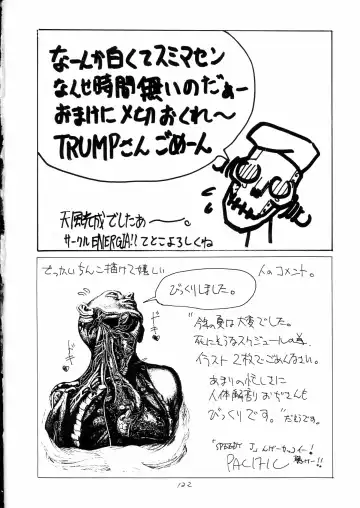 なーんか白くてスミマセン
なんせ時間無いのだぁー
おまけに〆切おくれ〜
TRUMPさんごめーん
天風完成でしたぁ〜。
サークルENERGIA!!てとこよろしくね
でっかいちんこ描けて嬉しい 人のコメント。
びっくりしました。
ドキ
ドキ
"今年の夏は大変でした。
死にそうなスケジュールの為
イラスト2枚でごめんなさい。
あまりの忙しさに
人体解剖おぢさんも
びっくりです。"だそうです。
「SPEEDY J」
PACIFIC
122